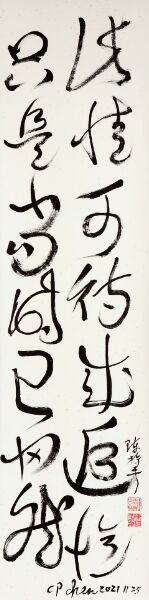 此情可待成追忆
只是当时已惘然
CP Chen 2021 11 25